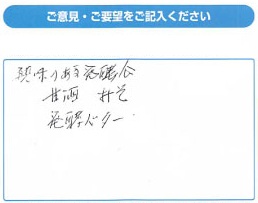 ご意見・ご要望をご記入ください
興味のある発酵食
甘酒 みそ
発酵バター